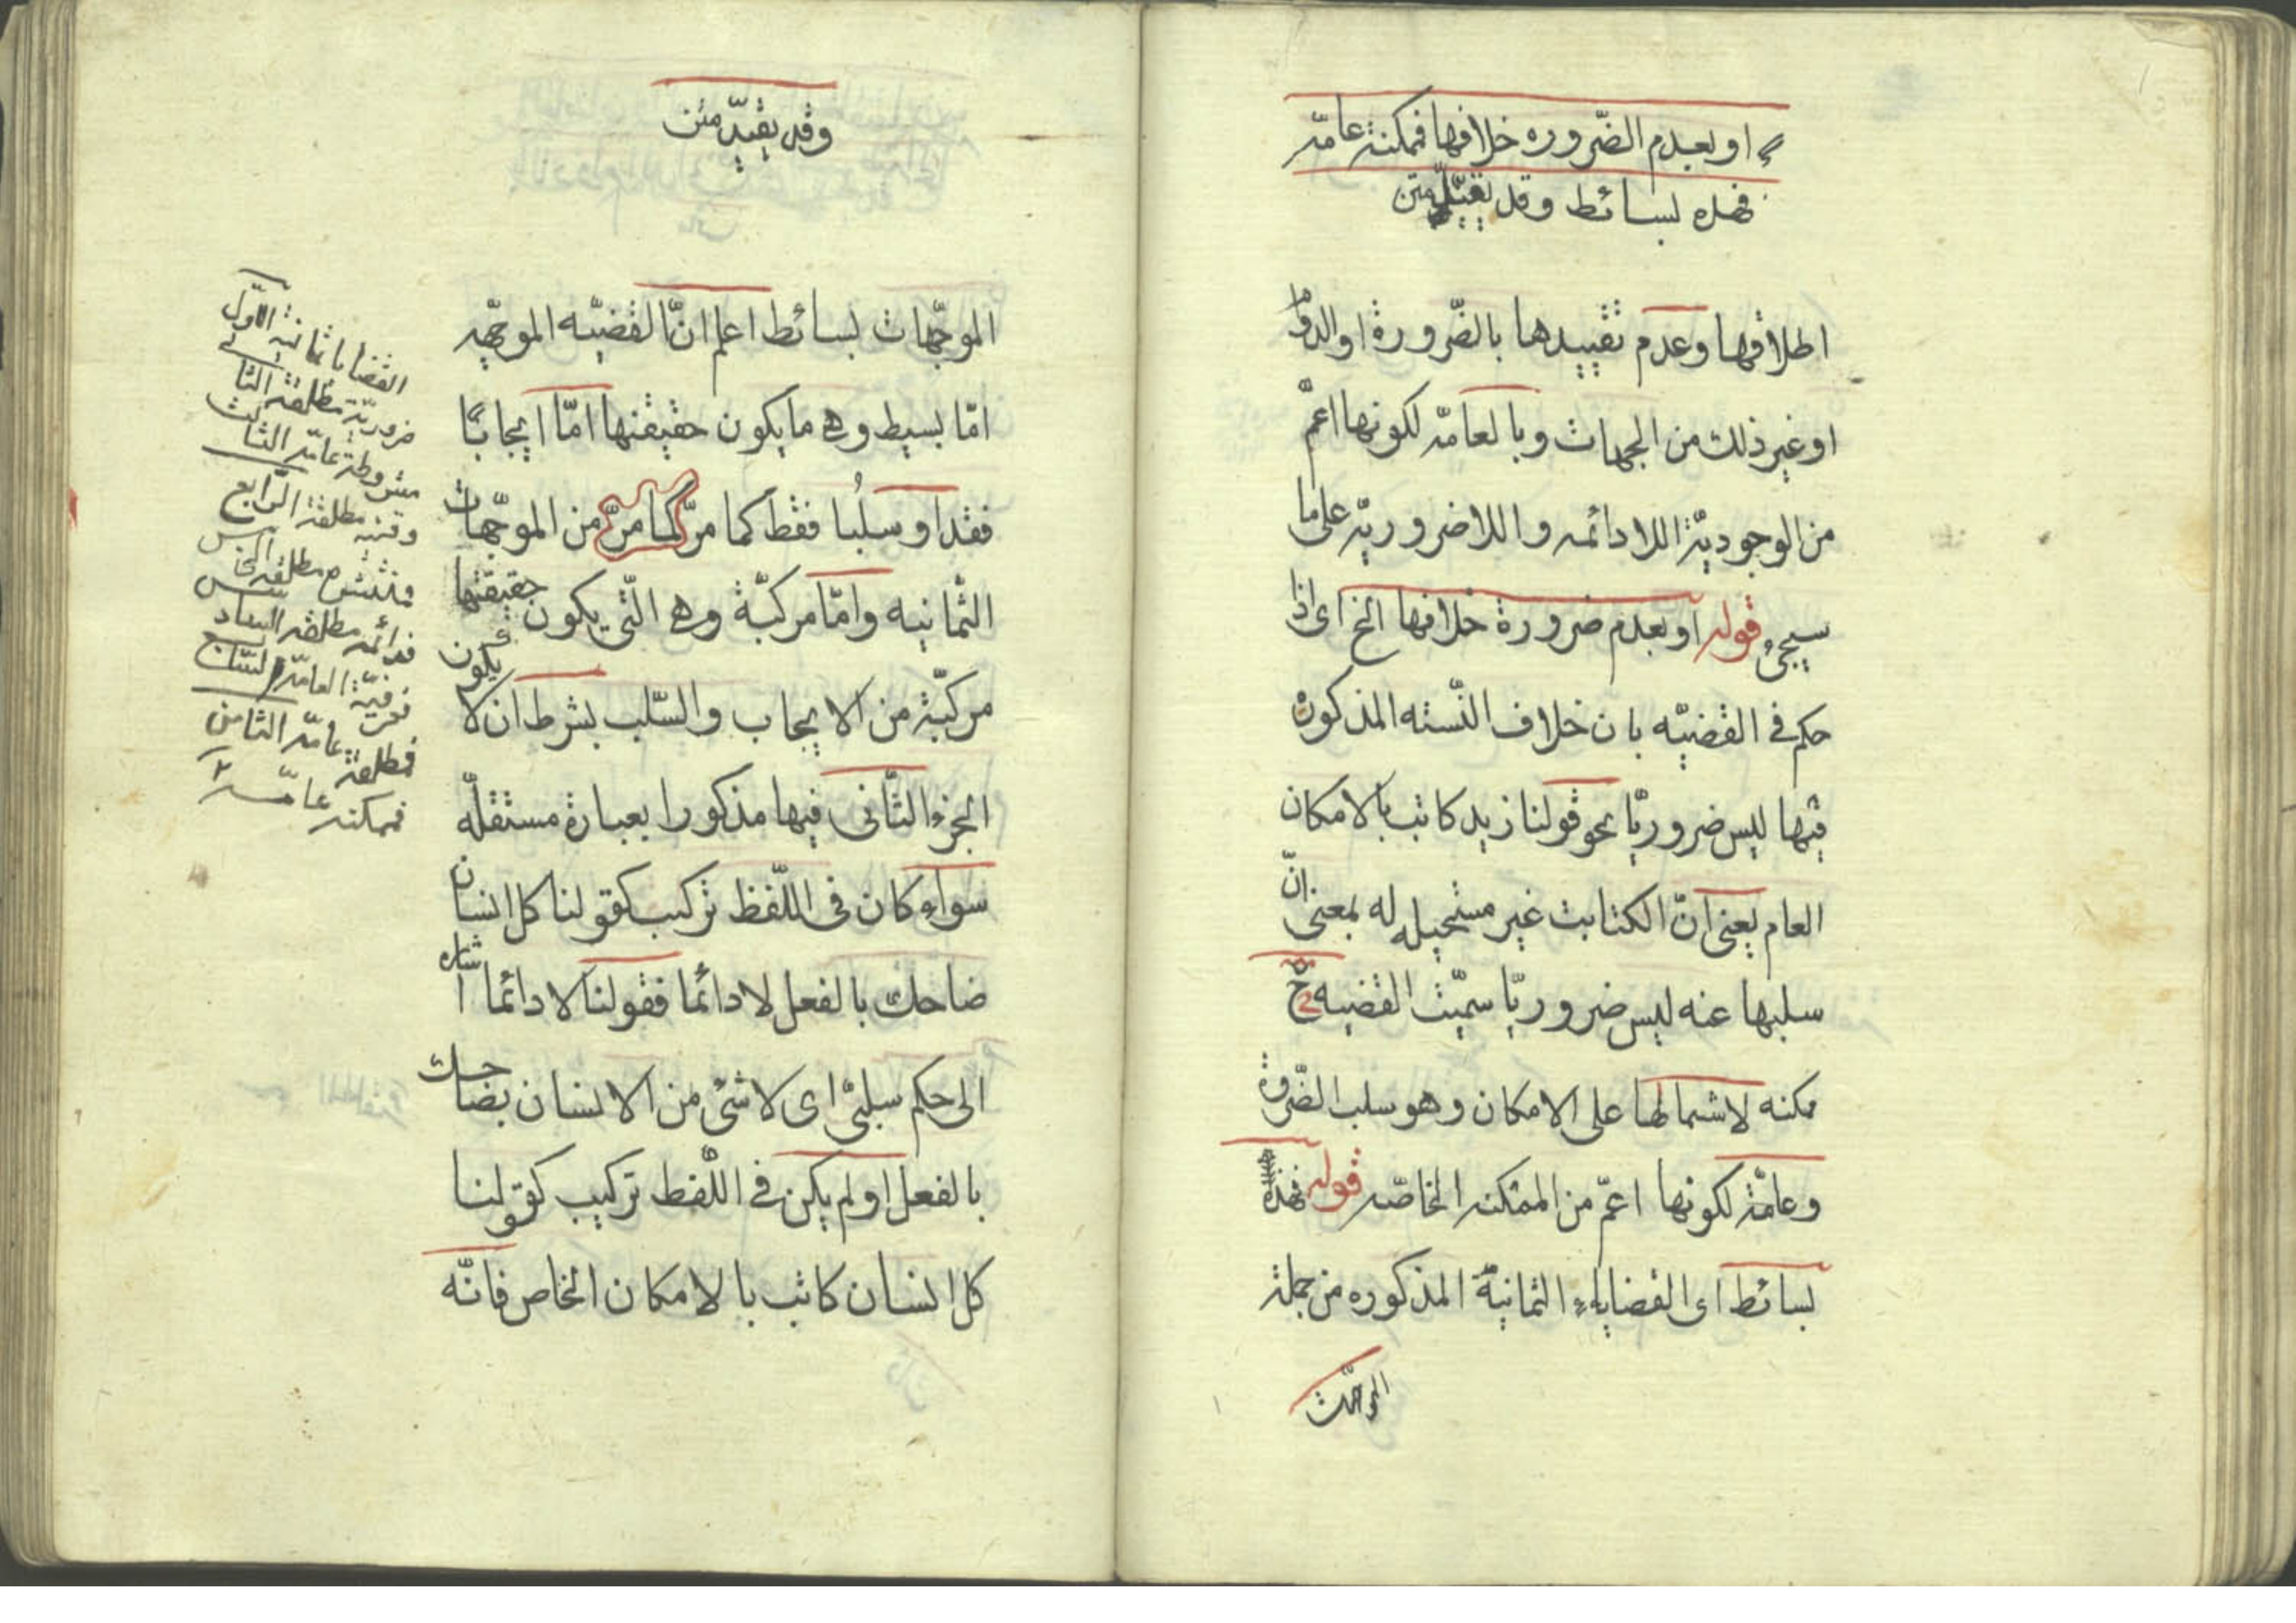 او بعدم الضّروره خلافها فممكنة عامّه
فهذه بسائط وقد تقيّد متن
اطلاقها وعدم تقييدها بالضّرورة او الدوام
او غير ذلك من الجهات وبالعامّه لكونها اعمّ
من الوجوديّة اللادائمه واللاضروريّه على ما
سيجئ قوله او بعدم ضرورة خلافها الخ اى اذا
حكم فى القضيّه بان خلاف النّسبته المذكورة
فيها ليس ضروريّا نحو قولنا زيد كاتب بالامكان
العام يعنى انّ الكتابت غير مستحيله له بمعنى انّ
سلبها عنه ليس ضروريّا سمّيت القضيه ح
مكنه لاشمالها على الامكان وهو سلب الضّرورة
وعامّة لكونها اعمّ من الممكنه الخاصّه قوله فهذه
بسائط اى القضاياء الثمانيّة المذكوره من جملة
الموجّهات
وقد يقيّد متن
الموجّهات بسائط اعلم انّ القضيّه الموجّهه
امّا بسيط وهى ما يكون حقيقتها امّا ايجابًا
فقد او سلبا فقط كما مرّ كما مرّ من الموجّهات
الثّمانيه وامّا مركبّة وهى الّتى يكون حقيقتها
مركبّة من الايجاب والسّلب بشرط ان لا يكون
الجزء الثّانى فيها مذكورا بعبارة مستقلّه
سواء كان فى اللّفظ تركيب كقولنا كل انسان
ضاحك بالفعل لا دائما فقولنا لا دائما اشاره
الى حكم سلبىّ اى لا شئ من الانسان بضاحك
بالفعل او لم يكن فى اللّفظ تركيب كقولنا
كل انسان كاتب بالامكان الخاص فانّه
القضايا ثمانية الاوّل
ضروريّة مطلقة الثانى
مشروطة عامّه الثالث
وقتيه مطلقة الرّابع
فمنتشره مطلقه الخامس
فدائمه مطلقه السادس
فعرفيّة العامّه السّابع
فمطلقة عامّه الثامن
فممكنه عامّه